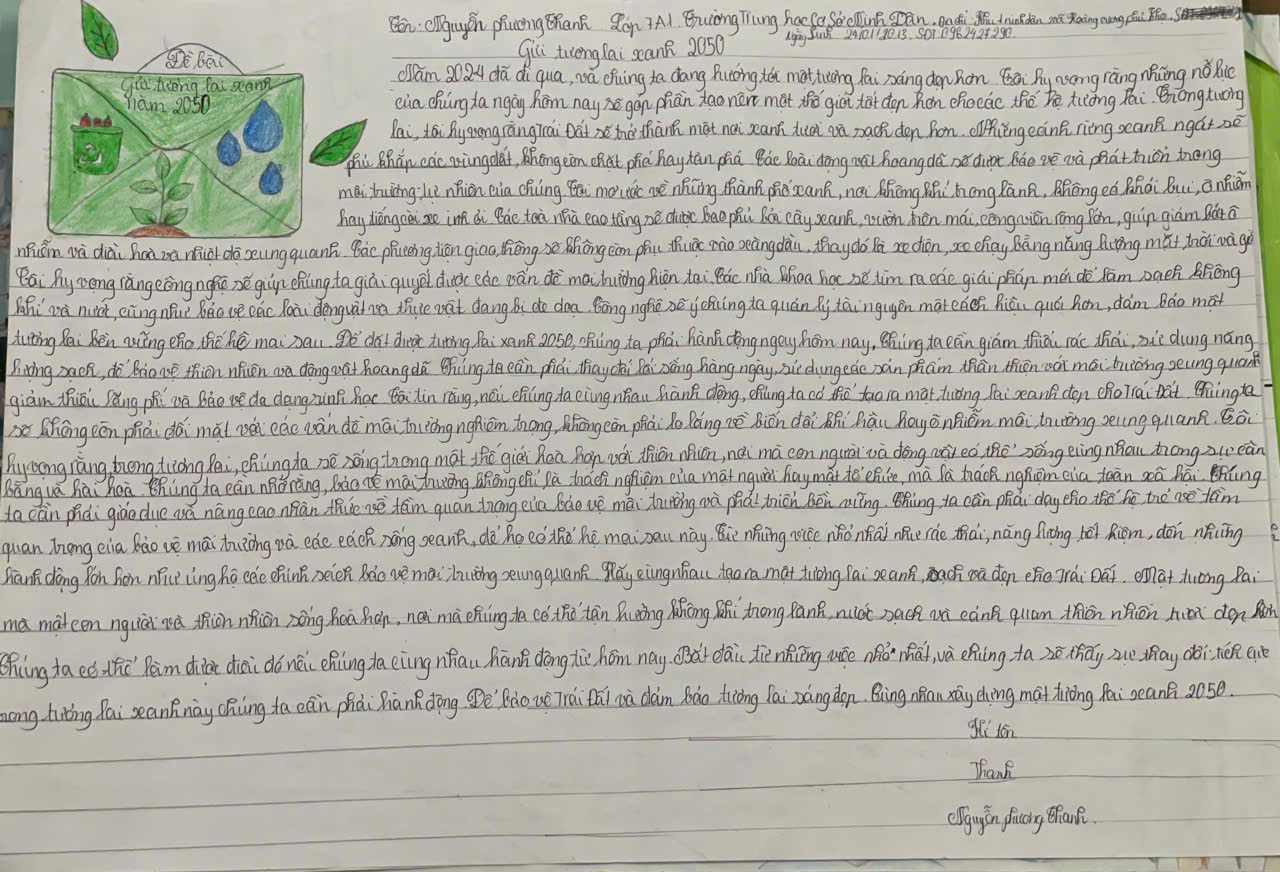 Tên: Nguyễn phương Thanh Lớp 7A1 Trường Trung học Cơ Sở Minh Dân.
Ngày Sinh 24/01/2013. SĐT: 0982427290.
Gửi tương lai xanh 2050
Đề bài
Gửi tương lai xanh
năm 2050
Năm 2024 đã đi qua, và chúng ta đang hướng tới một tương lai sáng đẹp hơn. Tôi hy vọng rằng những nỗ lực
của chúng ta ngày hôm nay sẽ góp phần tạo nên một thế giới tốt đẹp hơn cho các thế hệ tương lai. Trong tương
lai, tôi hy vọng rằng Trái Đất sẽ trở thành một nơi xanh tươi và sạch đẹp hơn. Những cánh rừng xanh ngát sẽ
phủ khắp các vùng đất, không còn chặt phá hay tàn phá Các loài động vật hoang dã sẽ được bảo vệ và phát triển trong
môi trường tự nhiên của chúng. Tôi mơ ước về những thành phố xanh, nơi không khí trong lành, không có khói bụi, ô nhiễm
hay tiếng còi xe inh ỏi. Các toà nhà cao tầng sẽ được bao phủ bởi cây xanh, vườn trên mái, công viên rộng lớn, giúp giảm bớt ô
nhiễm và điều hoà và nhiệt độ xung quanh. Các phương tiện giao thông sẽ không còn phụ thuộc vào xăng dầu, thay đó là xe điện, xe chạy bằng năng lượng mặt trời và gó
Tôi hy vọng rằng công nghệ sẽ giúp chúng ta giải quyết được các vấn đề môi trường hiện tại. Các nhà khoa học sẽ tìm ra các giải pháp mới để làm sạch không
khí và nước, cũng như bảo vệ các loài động vật và thực vật đang bị đe dọa. Công nghệ sẽ ý chúng ta quản lý tài nguyên một cách hiệu quả hơn, đảm bảo một
tương lai bền vững cho thế hệ mai sau. Để đạt được tương lai xanh 2050, chúng ta phải hành động ngay hôm nay. Chúng ta cần giảm thiểu rác thải, sử dụng năng
lượng sạch, để bảo vệ thiên nhiên và động vật hoang dã Chúng ta cần phải thay đổi lối sống hàng ngày, sử dụng các sản phẩm thân thiện với môi trường xung quanh
giảm thiểu lãng phí và bảo vệ đa dạng sinh học Tôi tin rằng, nếu chúng ta cùng nhau hành động, chúng ta có thể tạo ra một tương lai xanh đẹp cho Trái Đất. Chúng ta
sẽ không còn phải đối mặt với các vấn đề môi trường nghiêm trọng, không còn phải lo lắng về biến đổi khí hậu hay ô nhiễm môi trường xung quanh. Tôi
hy vọng rằng, trong tương lai, chúng ta sẽ sống trong một thế giới hoà hợp với thiên nhiên, nơi mà con người và động vật có thể sống cùng nhau trong sự cân
bằng và hài hoà. Chúng ta cần nhớ rằng, bảo vệ môi trường không chỉ là trách nghiệm của một người hay một tổ chức, mà là trách nghiệm của toàn xã hội. Chúng
ta cần phải giáo dục và nâng cao nhận thức về tầm quan trọng của bảo vệ môi trường và phát triển bền vững. Chúng ta cần phải dạy cho thế hệ trẻ về tầm
quan trọng của bảo vệ môi trường và các cách sống xanh, để họ có thế hệ mai sau này. Từ những việc nhỏ nhất như rác thải, năng lượng tiết kiệm, đến những
hành động lớn hơn như ủng hộ các chính sách bảo vệ môi trường xung quanh. Hãy cùng nhau tạo ra một tương lai xanh, sạch và đẹp cho Trái Đất. Một tương lai
mà một con người và thiên nhiên sống hoà hợp, nơi mà chúng ta có thể tận hưởng không khí trong lành, nước sạch và cảnh quan thiên nhiên tươi đẹp hơn
Chúng ta có thể làm được điều đó nếu chúng ta cùng nhau hành động từ hôm nay. Bắt đầu từ những việc nhỏ nhất, và chúng ta sẽ thấy sự thay đổi tích cực
trong tương lai xanh này chúng ta cần phải hành động Để bảo vệ Trái Đất và đảm bảo tương lai sáng đẹp. Cùng nhau xây dựng một tương lai xanh 2050.
Kí tên
Thanh
Nguyễn phương Thanh.